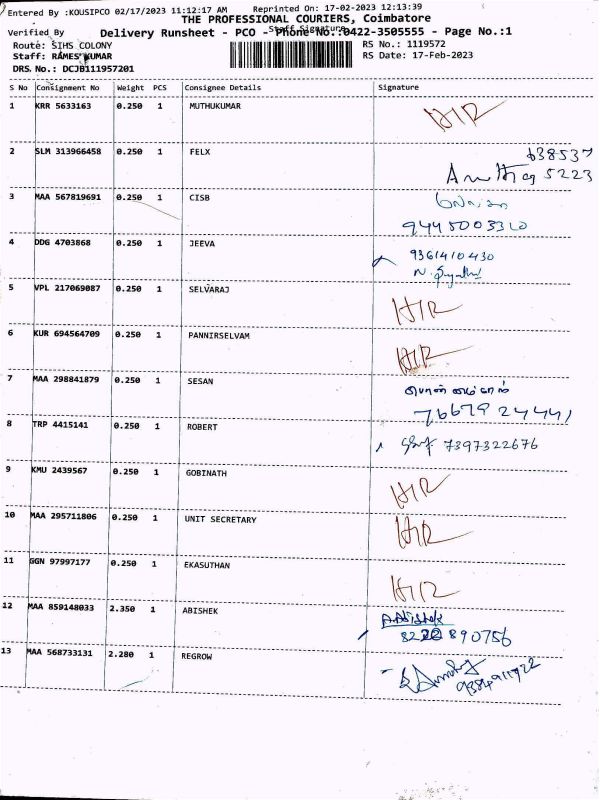 Entered By :KOUSIPCO 02/17/2023 11:12:17 AM Reprinted On: 17-02-2023 12:13:39
THE PROFESSIONAL COURIERS, Coimbatore
Verified By Staff Signature
Delivery Runsheet - PCO - Phone No.:0422-3505555 - Page No.:1
Route: SIHS COLONY RS No.: 1119572
Staff: RAMES KUMAR RS Date: 17-Feb-2023
DRS.No.: DCJB111957201
S No Consignment No Weight PCS Consignee Details Signature
1 KRR 5633163 0.250 1 MUTHUKUMAR HIR
638537
2 SLM 313966458 0.250 1 FELX 5223
3 MAA 567819691 0.250 1 CISB
9445003310
4 DDG 4703868 0.250 1 JEEVA 9361410430
5 VPL 217069087 0.250 1 SELVARAJ HIR
6 KUR 694564709 0.250 1 PANNIRSELVAM HIR
7 MAA 298841879 0.250 1 SESAN
7667924441
8 TRP 4415141 0.250 1 ROBERT 7397322676
9 KMU 2439567 0.250 1 GOBINATH HIR
10 MAA 295711806 0.250 1 UNIT SECRETARY HIR
11 GGN 97997177 0.250 1 EKASUTHAN HIR
12 MAA 859148033 2.350 1 ABISHEK A.Abishek
8220890756
13 MAA 568733131 2.280 1 REGROW
9384911922